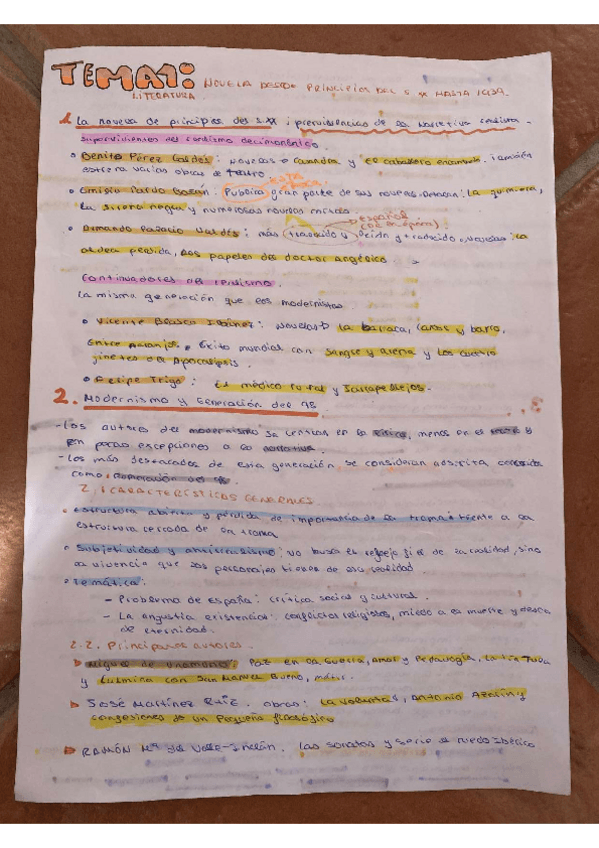 TEMA1: NOVELA DESDE PRINCIPIOS DEL S. XX HASTA 1939.
LITERATURA
1. La novela de principios del S.XX: pervivencias de la narrativa realista.
Supervivientes del realismo decimonónico.
Benito Pérez Galdós: novelas → Casandra y el caballero encantado. También
estrena varias obras de teatro.
Emilia Pardo Bazán: Publica gran parte de sus novelas. Destacan: La quimera,
La sirena negra y numerosas novelas cortas.
español
Armando Palacio Valdés: más traducido y leído y traducido. novelas: La
aldea perdida, Los papeles del doctor angélico.
Continuadores del realismo.
La misma generación que los modernistas.
Vicente Blasco Ibáñez: novelas → La barraca, Cañas y barro,
Entre naranjos. Éxito mundial con Sangre y arena y Los cuatro
jinetes del Apocalipsis.
Felipe Trigo: El médico rural y Jarrapellejos.
2. Modernismo y Generación del 98
- Los autores del modernismo se centran en la lírica, menos en el teatro y
en pocas excepciones a la narrativa.
- Los más destacados de esta generación, se consideran adscrita
como Generación del 98.
2.1 CARACTERÍSTICAS GENERALES.
Estructura abierta y pérdida de importancia de la trama: frente a la
estructura cerrada de un trama
Subjetividad y antirrealismo: no busca el reflejo fiel de la realidad, sino
la vivencia que los personajes tienen de esa realidad.
Temática:
- Problema de España: crítica social y cultural.
- La angustia existencial: conflictos religiosos, miedo a la muerte y deseo
de eternidad.
2.2. Principales autores.
Miguel de Unamuno: Paz en la Guerra, Amor y Pedagogía, La tía Tula
y culmina con San Manuel Bueno, mártir.
JOSÉ Martínez Ruiz. obras: La voluntad, Antonio Azorín y
confesiones de un pequeño filósofo
RAMÓN Mª del Valle-Inclán. las sonatas y serie el ruedo ibérico